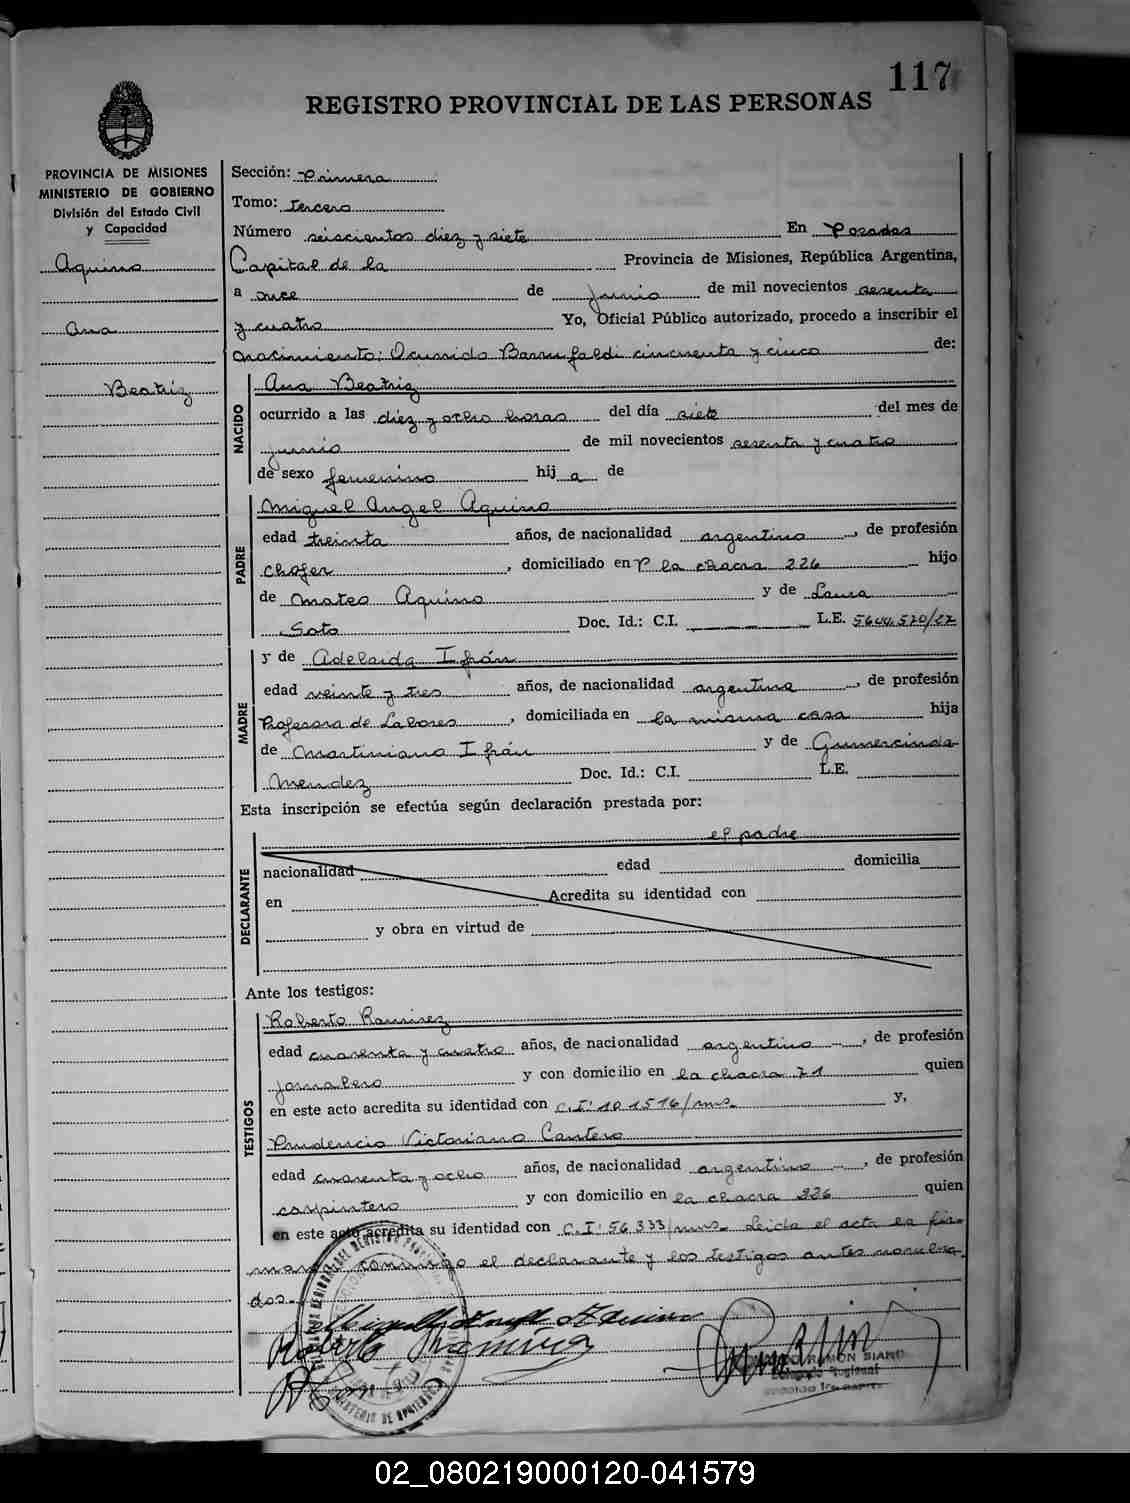 117
REGISTRO PROVINCIAL DE LAS PERSONAS
PROVINCIA DE MISIONES
MINISTERIO DE GOBIERNO
División del Estado Civil
y Capacidad
Aquino
Ana
Beatriz
Sección: Primera
Tomo: tercero
Número seiscientos diez y siete En Posadas
Capital de la Provincia de Misiones, República Argentina,
a once de Junio de mil novecientos sesenta
y cuatro Yo, Oficial Público autorizado, procedo a inscribir el
nacimiento: Ocurrido Barrufaldi cincuenta y cinco de:
NACIDO
Ana Beatriz
ocurrido a las diez y ocho horas del día siete del mes de
junio de mil novecientos sesenta y cuatro
de sexo femenino hij a de
PADRE
Miguel Angel Aquino
edad treinta años, de nacionalidad argentino, de profesión
chofer, domiciliado en P la chacra 226 hijo
de Mateo Aquino y de Laura
Soto Doc. Id.: C.I. L.E.
MADRE
y de Adelaida Ifrán
edad veinte y tres años, de nacionalidad argentina, de profesión
Profesora de Labores, domiciliada en la misma casa hija
de Martiniano Ifrán y de Gumercinda
Mendez Doc. Id.: C.I. L.E.
Esta inscripción se efectúa según declaración prestada por:
DECLARANTE
el padre
nacionalidad edad domicilia
en Acredita su identidad con
y obra en virtud de
Ante los testigos:
TESTIGOS
Roberto Ramirez
edad cuarenta y cuatro años, de nacionalidad argentino, de profesión
jornalero y con domicilio en la chacra 71 quien
en este acto acredita su identidad con C.I: 101516/mns. y,
Prudencio Victoriano Cantero
edad cuarenta y ocho años, de nacionalidad argentino, de profesión
carpintero y con domicilio en la chacra 226 quien
en este acto acredita su identidad con C.I: 56.333/mns. Leida el acta la fir-
man conmigo el declarante y los testigos antes nombra-
dos.
Miguel Angel Aquino
Roberto Ramirez
RAMON SIANO
Delegado Regional
02_080219000120-041579